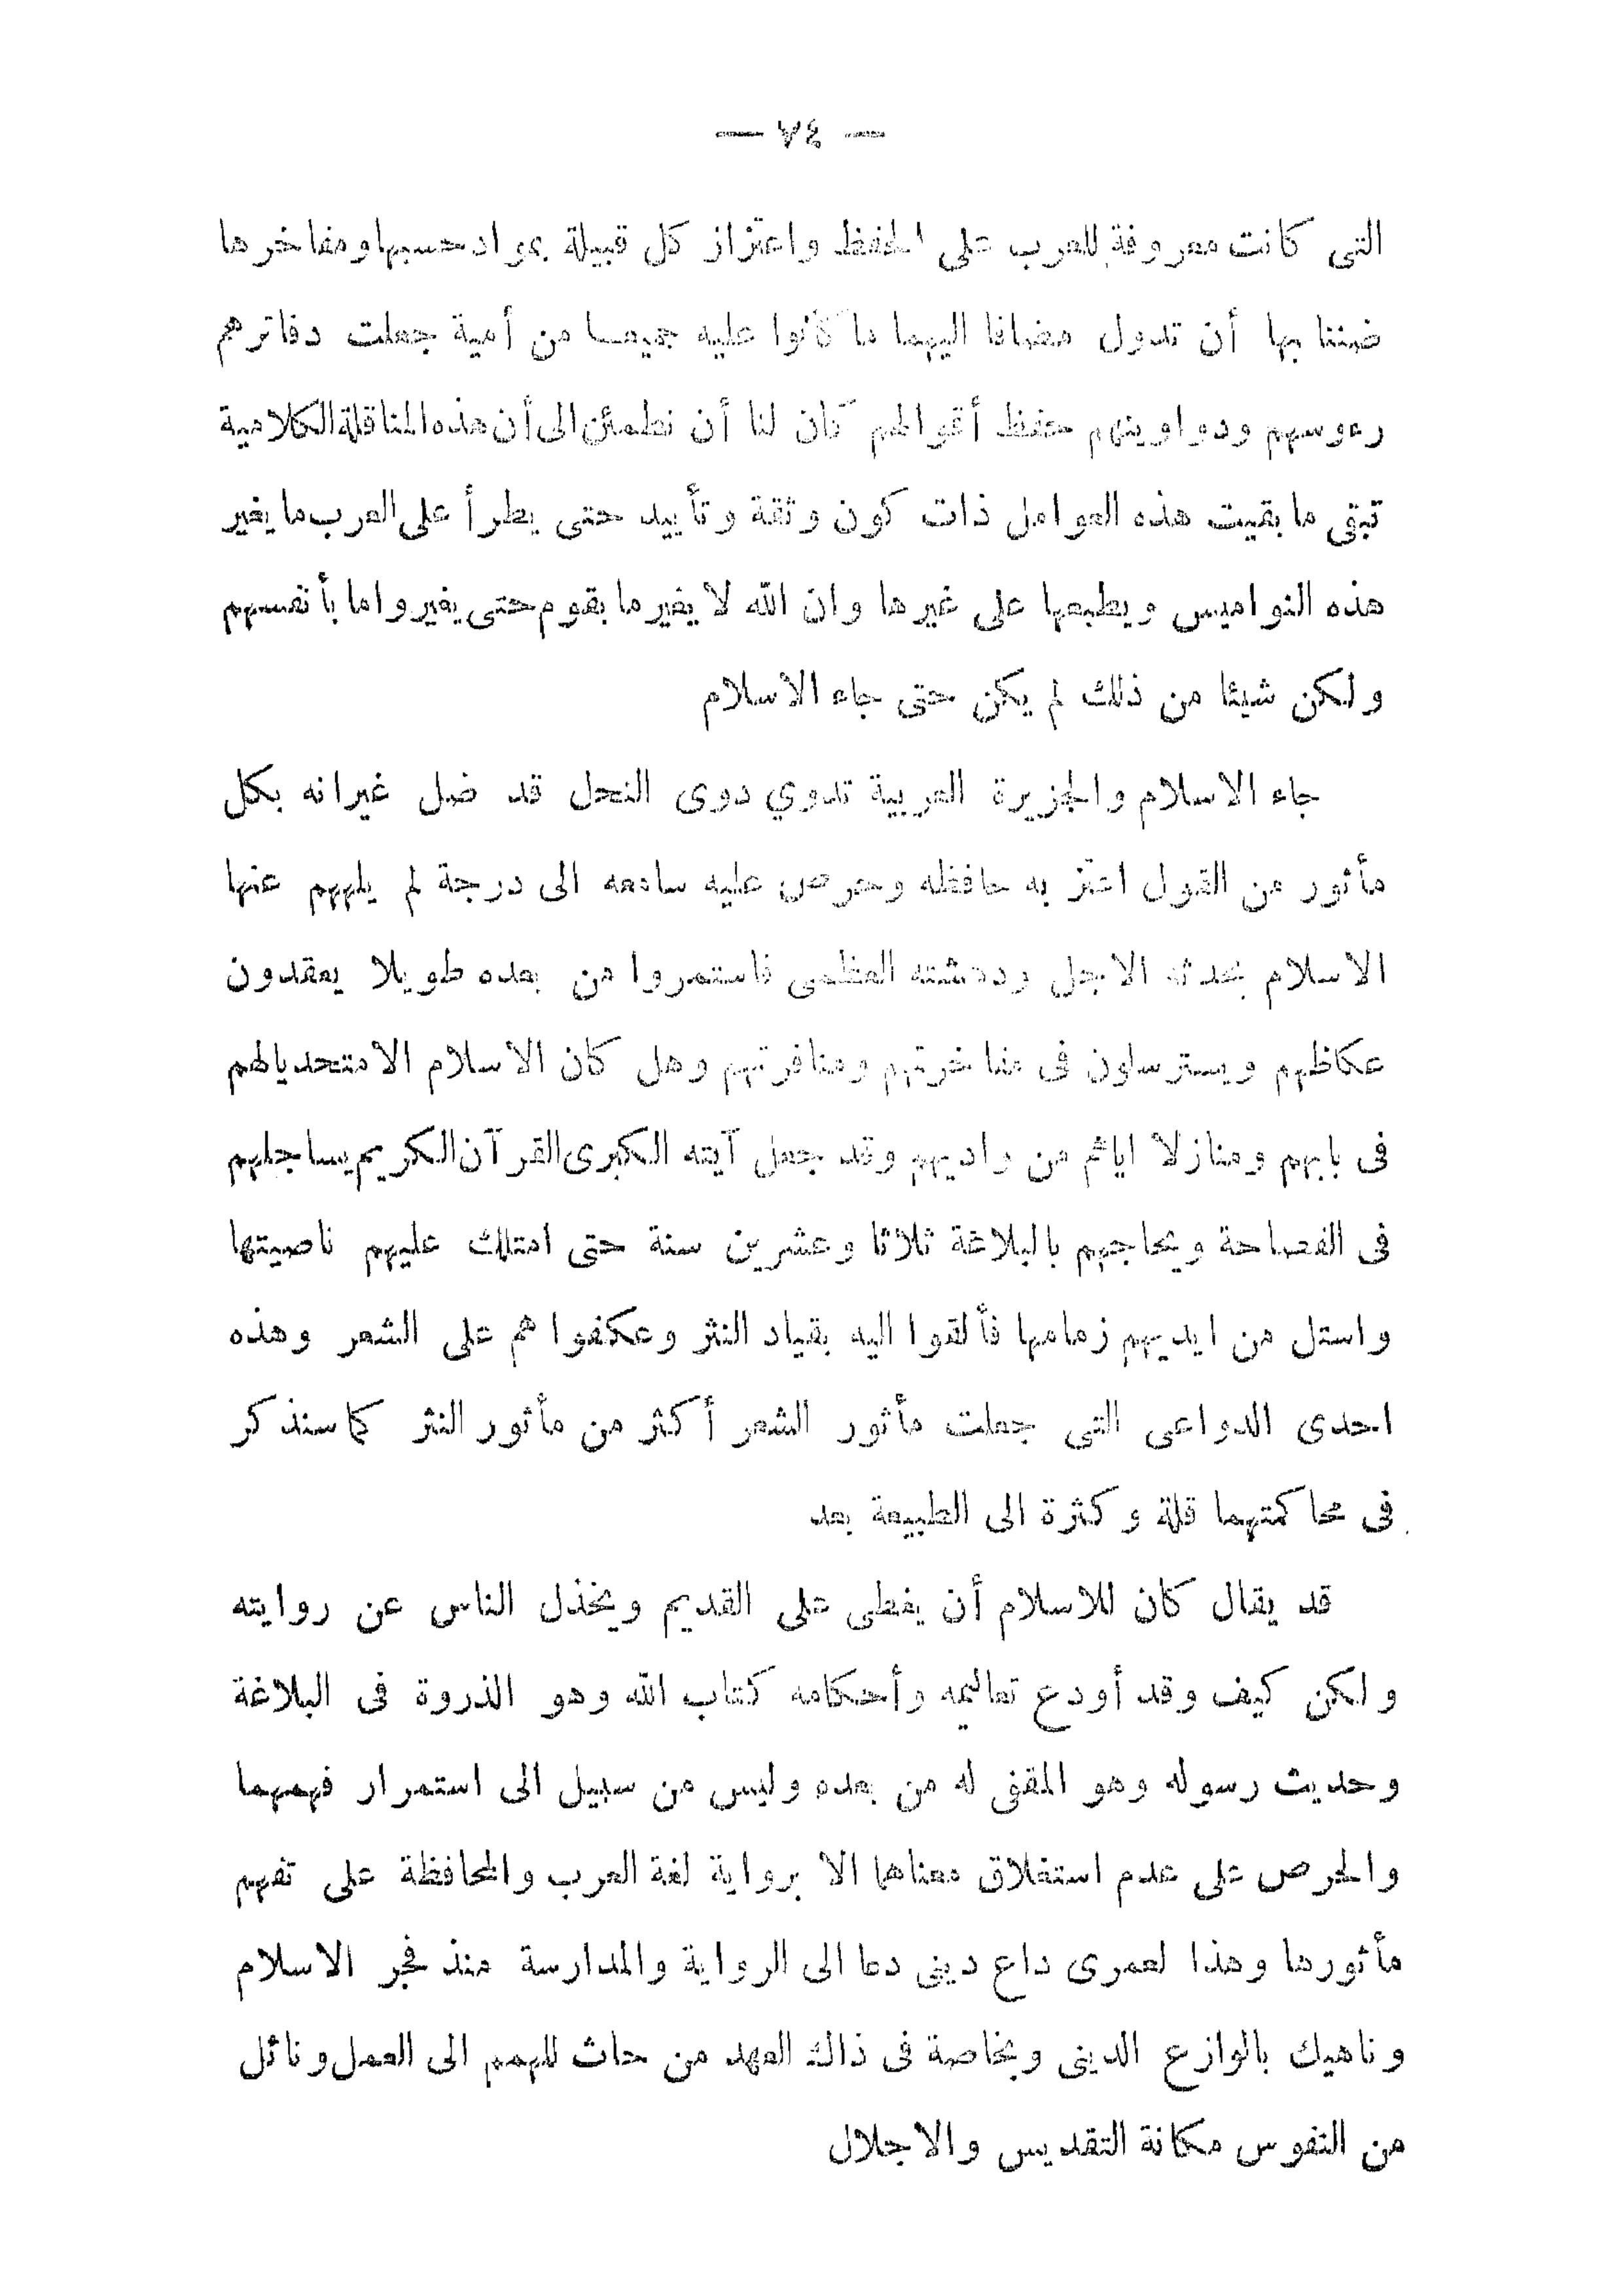 — ٧٤ —
التى كانت معروفة للعرب على الحفظ واعتزاز كل قبيلة بمواد حسبها ومفاخرها
ضننا بها أن تدول مضافا اليهما ما كانوا عليه جميعا من أمية جعلت دفاترهم
رءوسهم ودواوينهم حفظ أقوالهم كان لنا أن نطمئن الى أن هذه المناقلة الكلامية
تبقى ما بقيت هذه العوامل ذات كون وثقة وتأييد حتى يطرأ على العرب ما يغير
هذه النواميس ويطبعها على غيرها وان الله لا يغير ما بقوم حتى يغيروا ما بأنفسهم
ولكن شيئا من ذلك لم يكن حتى جاء الاسلام
جاء الاسلام والجزيرة العربية تدوي دوى النحل قد ضل غيرانه بكل
مأثور من القول اعتز به حافظه وحرص عليه سامعه الى درجة لم يلههم عنها
الاسلام بحدثه الاجل ودهشته العظمى فاستمروا من بعده طويلا يعقدون
عكاظهم ويسترسلون فى مفاخرتهم ومنافرتهم وهل كان الاسلام الا متحديا لهم
فى بابهم ومنازلا اياهم من واديهم وقد جعل آيته الكبرى القرآن الكريم يساجلهم
فى الفصاحة ويحاجهم بالبلاغة ثلاثا وعشرين سنة حتى امتلك عليهم ناصيتها
واستل من ايديهم زمامها فألقوا اليه بقياد النثر وعكفوا هم على الشعر وهذه
احدى الدواعى التى جعلت مأثور الشعر أكثر من مأثور النثر كما سنذكر
فى محاكمتهما قلة وكثرة الى الطبيعة بعد
قد يقال كان للاسلام أن يغطى على القديم ويخذل الناس عن روايته
ولكن كيف وقد أودع تعاليمه وأحكامه كتاب الله وهو الذروة فى البلاغة
وحديث رسوله وهو المقفى له من بعده وليس من سبيل الى استمرار فهمهما
والحرص على عدم استغلاق معناهما الا برواية لغة العرب والمحافظة على تفهم
مأثورها وهذا لعمرى داع دينى دعا الى الرواية والمدارسة منذ فجر الاسلام
وناهيك بالوازع الدينى وبخاصة فى ذاك العهد من حاث للهمم الى العمل ونائل
من النفوس مكانة التقديس والاجلال